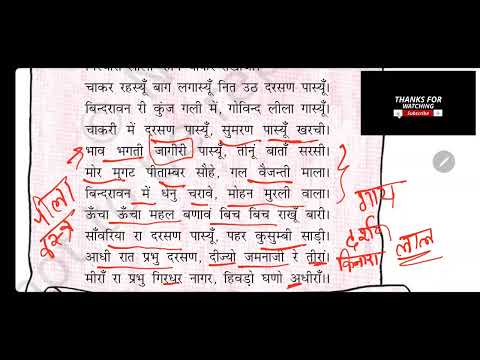 चाकर रहस्यूँ बाग लगास्यूँ नित उठ दरसण पास्यूँ।
बिन्दरावन री कुंज गली में, गोविन्द लीला गास्यूँ।
चाकरी में दरसण पास्यूँ, सुमरण पास्यूँ खरची।
भाव भगती जागीरी पास्यूँ, तीनूं बाताँ सरसी।
मोर मुगट पीताम्बर सौहे, गल वैजन्ती माला।
बिन्दरावन में धेनु चरावे, मोहन मुरली वाला।
ऊँचा ऊँचा महल बणावं बिच बिच राखूँ बारी।
साँवरिया रा दरसण पास्यूँ, पहर कुसुम्बी साड़ी।
आधी रात प्रभु दरसण, दीज्यो जमनाजी रे तीराँ।
मीराँ रा प्रभु गिरधर नागर, हिवड़ो घणो अधीराँ।।
पीला
वस्त्र
गाय
दर्शन
किनारा
लाल
THANKS FOR
WATCHING
Subscribe